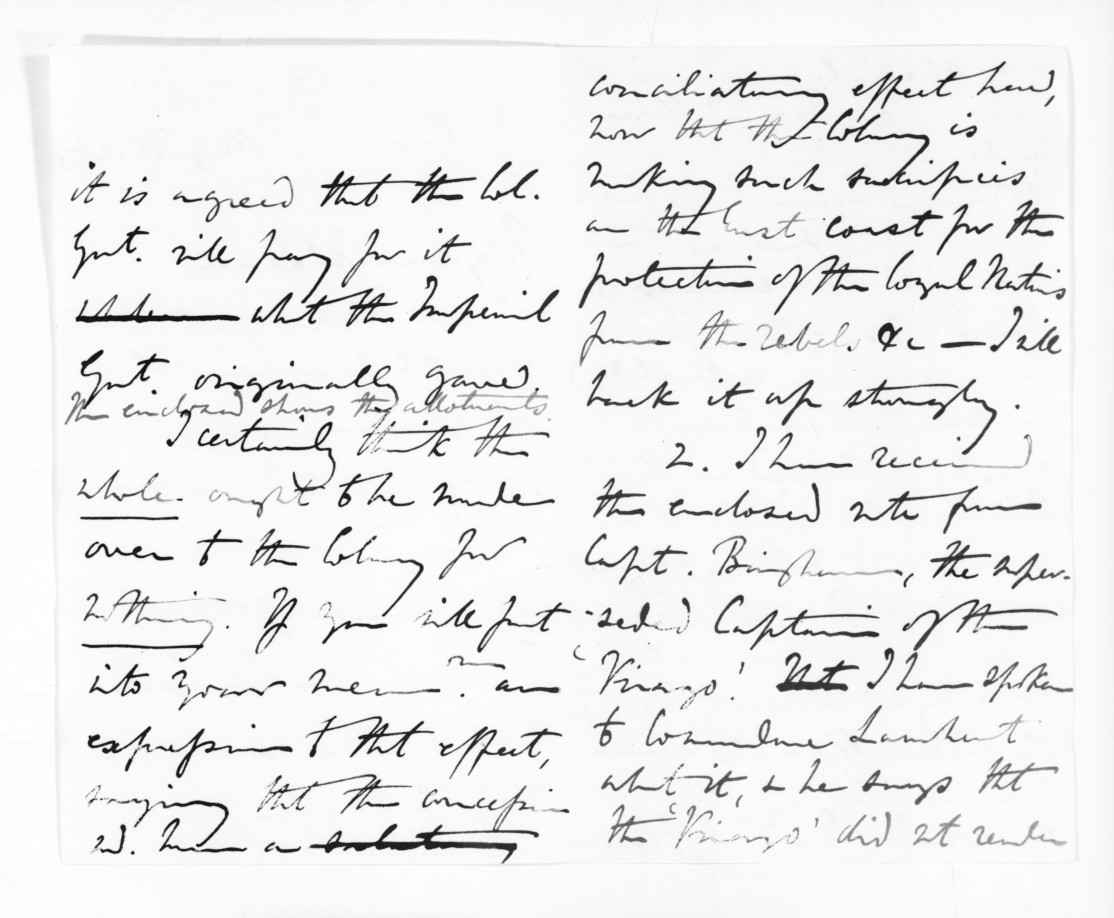 it is agreed that the Col.
Govt. will pay for it
what the Imperial
Govt. originally gave.
The enclosed shows the allotments.
I certainly think the
whole ought to be made
over to the Colony for
nothing. If you will put
into your mem:m an
expression to that effect,
saying that the concession
wd. have a salutary
conciliatory effect here,
now that the Colony is
making such sacrifices
on the East coast for the
protection of the loyal Natives
from the rebels &c — I will
back it up strongly.
2. I have received
the enclosed note from
Capt. Bingham, the super-
-seded Captain of the
'Virago'. Not I have spoken
to Commodore Lambert
about it, & he says that
the 'Virago' did not render